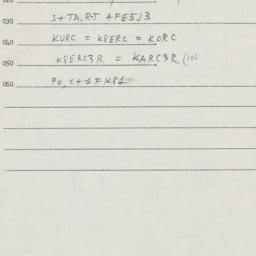 030 S+TA.RT AFE5J3
040 KURC = K8ERC = KORC
050 K8ERC3R = KARC3R (106
060 PO, C+1FKP1